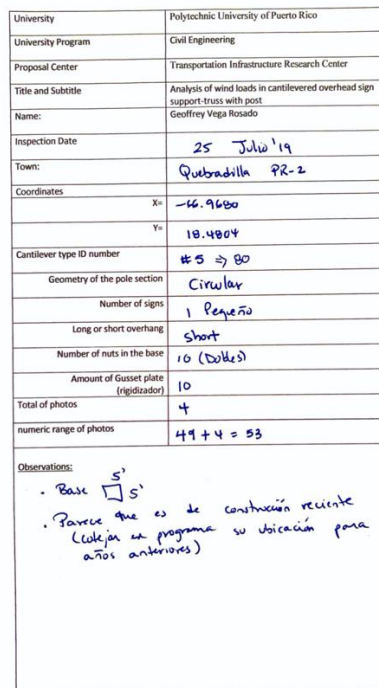 University Polytechnic University of Puerto Rico
University Program Civil Engineering
Proposal Center Transportation Infrastructure Research Center
Title and Subtitle Analysis of wind loads in cantilevered overhead sign
support-truss with post
Name: Geoffrey Vega Rosado
Inspection Date 25 Julio '19
Town: Quebradilla PR-2
Coordinates
X= -66.9680
Y= 18.4804
Cantilever type ID number #5 ⇒ 80
Geometry of the pole section Circular
Number of signs 1 Pequeño
Long or short overhang short
Number of nuts in the base 10 (Dobles)
Amount of Gusset plate 10
(rigidizador)
Total of photos 4
numeric range of photos 49 + 4 = 53
Observations:
5'
• Base 5'
• Parece que es de construción reciente
(cotejar en programa su ubicación para
años anteriores)